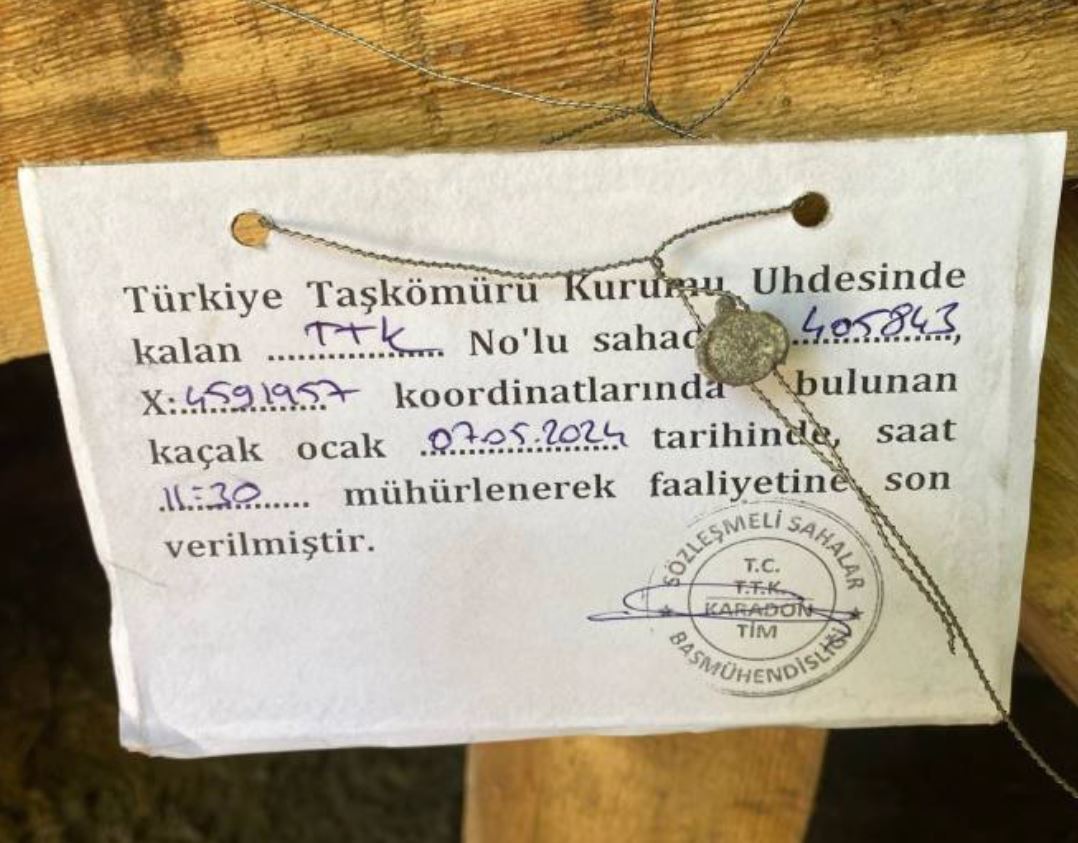 Türkiye Taşkömürü Kurumu Uhdesinde
kalan TTK No'lu sahad 405843,
X: 4591957 koordinatlarında bulunan
kaçak ocak 07.05.2024 tarihinde, saat
11:30 mühürlenerek faaliyetine son
verilmiştir.
SÖZLEŞMELİ SAHALAR
T.C.
T.T.K.
KARADON
TİM
BAŞMÜHENDİSLİĞİ